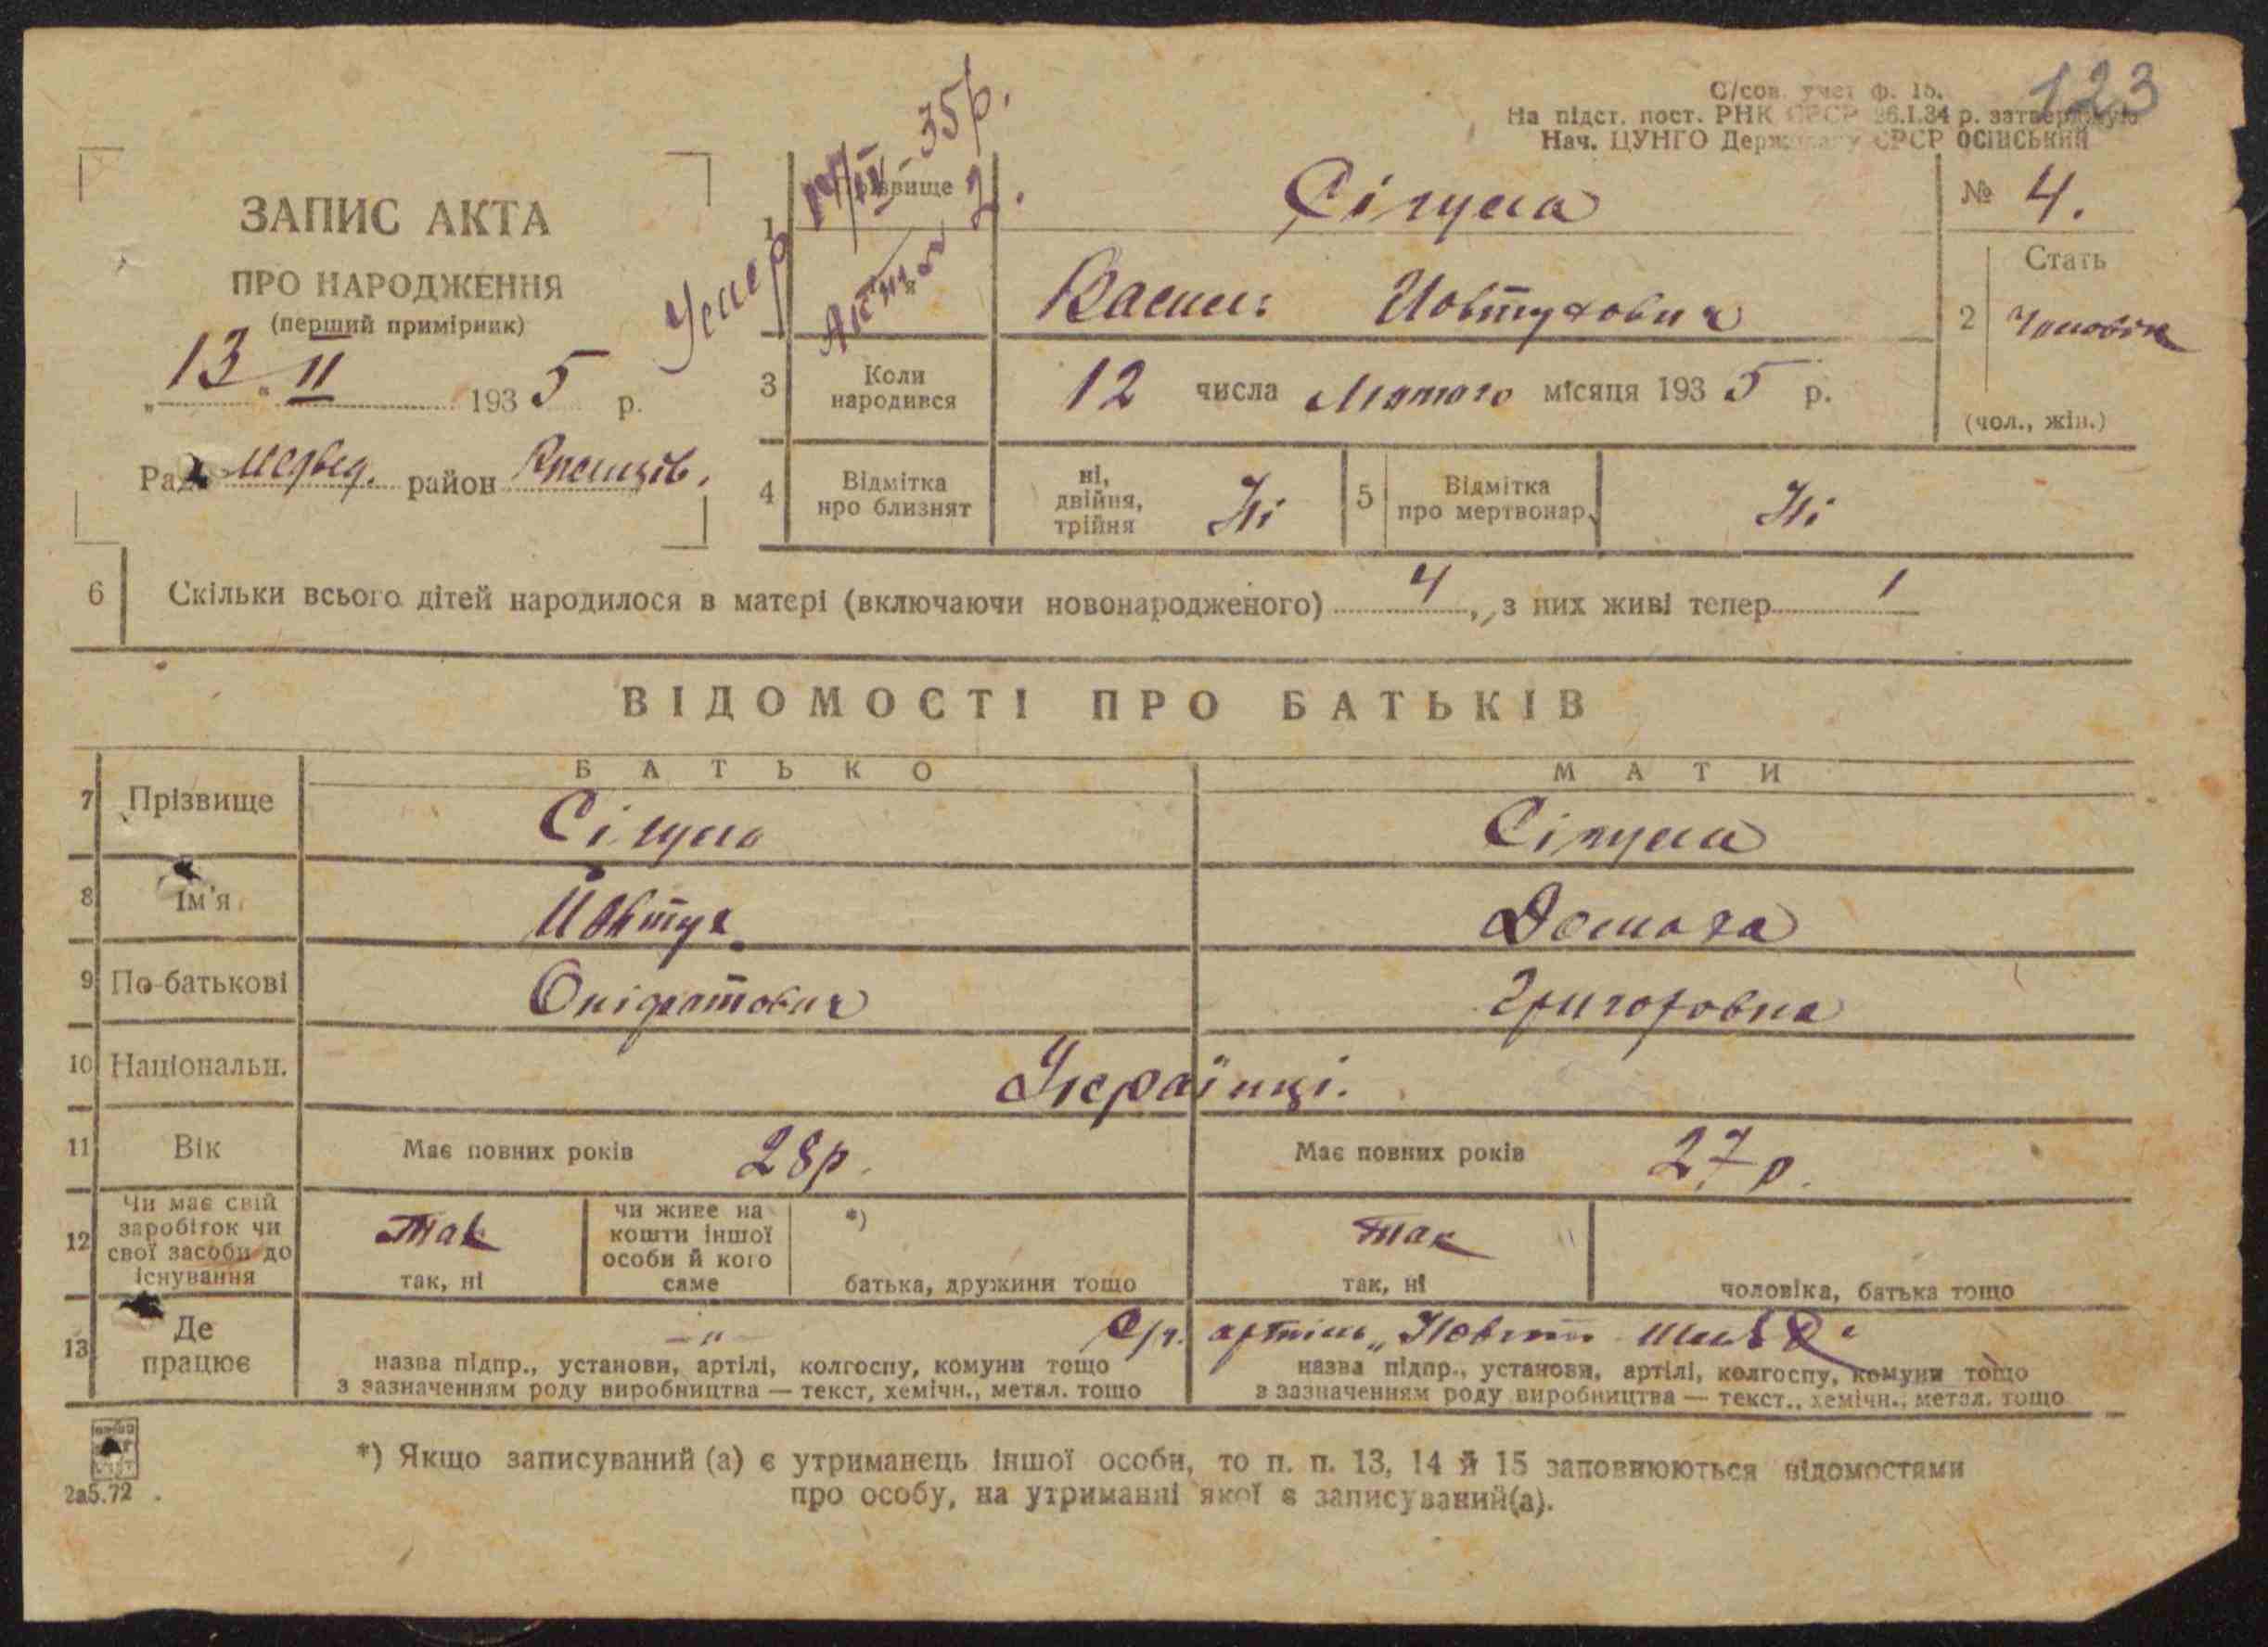 123
С/сов. учет ф. 15.
На підст. пост. РНК СРСР 26.I.34 р. затверджую
Нач. ЦУНГО Держплану СРСР ОСІНСЬКИЙ
ЗАПИС АКТА
ПРО НАРОДЖЕННЯ
(перший примірник)
„ 13 " II 1935 р.
Рада Медвед. район
Умер 17/IV-35р.
Актъ 2.
1 Прізвище Сігума
№ 4.
Василь Йовтухович
2 Стать Чоловік
(чол., жін.)
3 Коли народився 12 числа Лютого місяця 1935 р.
4 Відмітка про близнят ні, двійня, трійня Ні
5 Відмітка про мертвонар. Ні
6 Скільки всього дітей народилося в матері (включаючи новонародженого) 4, з них живі тепер 1
ВІДОМОСТІ ПРО БАТЬКІВ
БАТЬКО МАТИ
7 Прізвище Сігума Сігума
8 Ім'я Йовтух Домаха
9 По-батькові Оніфатович Григоровна
10 Національн. Українці.
11 Вік Має повних років 28р. Має повних років 27р.
12 Чи має свій заробіток чи свої засоби до існування Так так, ні чи живе на кошти іншої особи й кого саме *) батька, дружини тощо Так так, ні чоловіка, батька тощо
13 Де працює —"— С/г. артіль „Новий Шлях"
назва підпр., установи, артілі, колгоспу, комуни тощо назва підпр., установи, артілі, колгоспу, комуни тощо
з зазначенням роду виробництва — текст, хемічн., метал. тощо з зазначенням роду виробництва — текст., хемічн., метал. тощо
2а5.72
*) Якщо записуваний (а) є утриманець іншої особи, то п. п. 13, 14 й 15 заповнюються відомостями
про особу, на утриманні якої є записуваний(а).